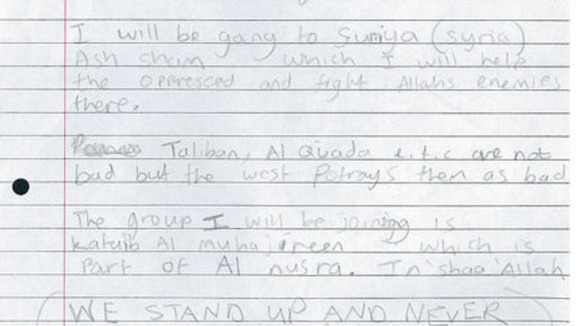 I will be gang to Suriya (syria)
Ash sham which I will help
the oppressed and fight Allahs enemies
there.
Taliban, Al Quada e.t.c are not
bad but the west Potrays them as bad
The group I will be joining is
Katuib Al muhajireen which is
Part of Al nusra. In'shaa'Allah
WE STAND UP AND NEVER